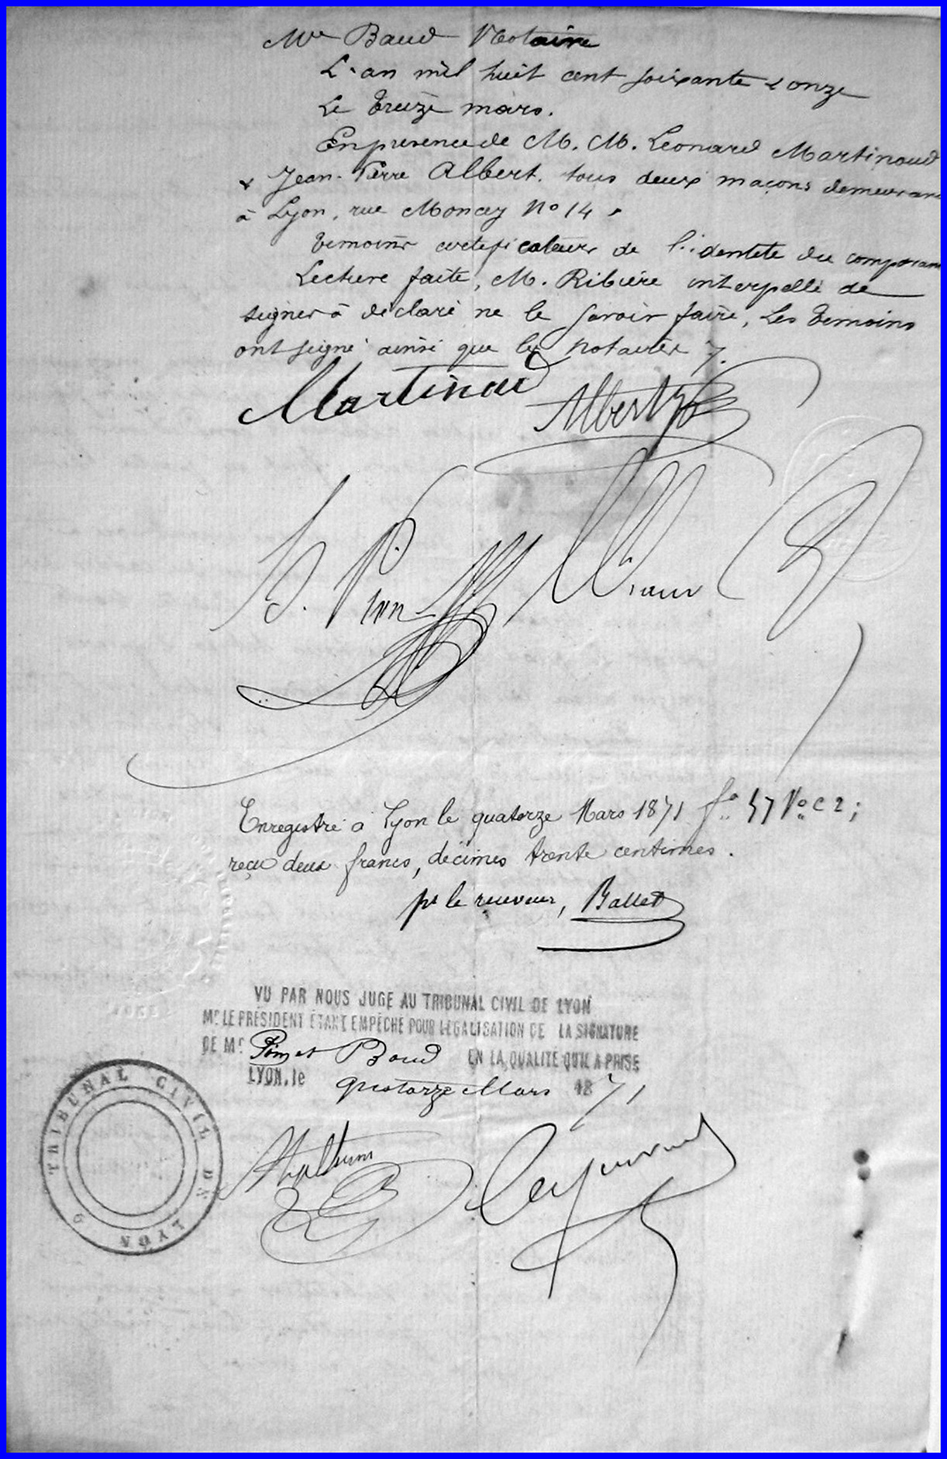 Me Baud Notaire
L'an mil huit cent soixante & onze
Le treize mars.
En presence de M. M. Léonard Martinaud
& Jean-Pierre Albert. tous deux maçons demeurant
à Lyon, rue Moncey No 14.
temoins certificateurs de l'identité du comparant
Lecture faite, M. Ribière interpellé de
signer à déclaré ne le savoir faire, Les temoins
ont signé ainsi que les notaires ./.
Martinaud
Albert
Enregistré à Lyon le quatorze Mars 1871 fo. 57 Vo. c 2;
reçu deux francs, décimes trente centimes.
pr le receveur, Ballet
VU PAR NOUS JUGE AU TRIBUNAL CIVIL DE LYON
Mr LE PRÉSIDENT ÉTANT EMPÊCHÉ POUR LÉGALISATION DE LA SIGNATURE
DE Me Baud EN LA QUALITÉ QU'IL A PRISE
LYON, le quatorze Mars 1871
TRIBUNAL CIVIL DE LYON